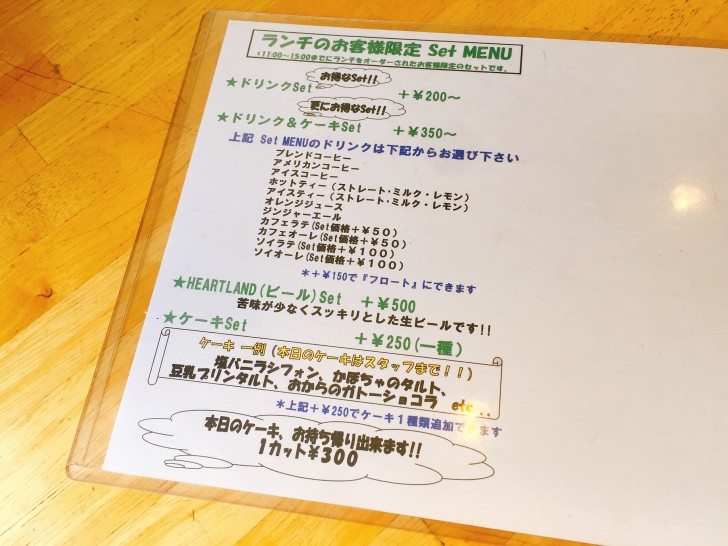 ランチのお客様限定 Set MENU
*11:00~15:00までにランチをオーダーされたお客様限定のセットです。
お得なSet!!
★ドリンクSet +¥200~
更にお得なSet!!
★ドリンク&ケーキSet +¥350~
上記 Set MENUのドリンクは下記からお選び下さい
ブレンドコーヒー
アメリカンコーヒー
アイスコーヒー
ホットティー(ストレート・ミルク・レモン)
アイスティー(ストレート・ミルク・レモン)
オレンジジュース
ジンジャーエール
カフェラテ(Set価格+¥50)
カフェオーレ(Set価格+¥50)
ソイラテ(Set価格+¥100)
ソイオーレ(Set価格+¥100)
*+¥150で『フロート』にできます
★HEARTLAND(ビール)Set +¥500
苦味が少なくスッキリとした生ビールです!!
★ケーキSet +¥250(一種)
ケーキ 一例(本日のケーキはスタッフまで!!)
塩バニラシフォン、かぼちゃのタルト、
豆乳プリンタルト、おからのガトーショコラ etc...
*上記+¥250でケーキ1種類追加できます
本日のケーキ、お持ち帰り出来ます!!
1カット¥300